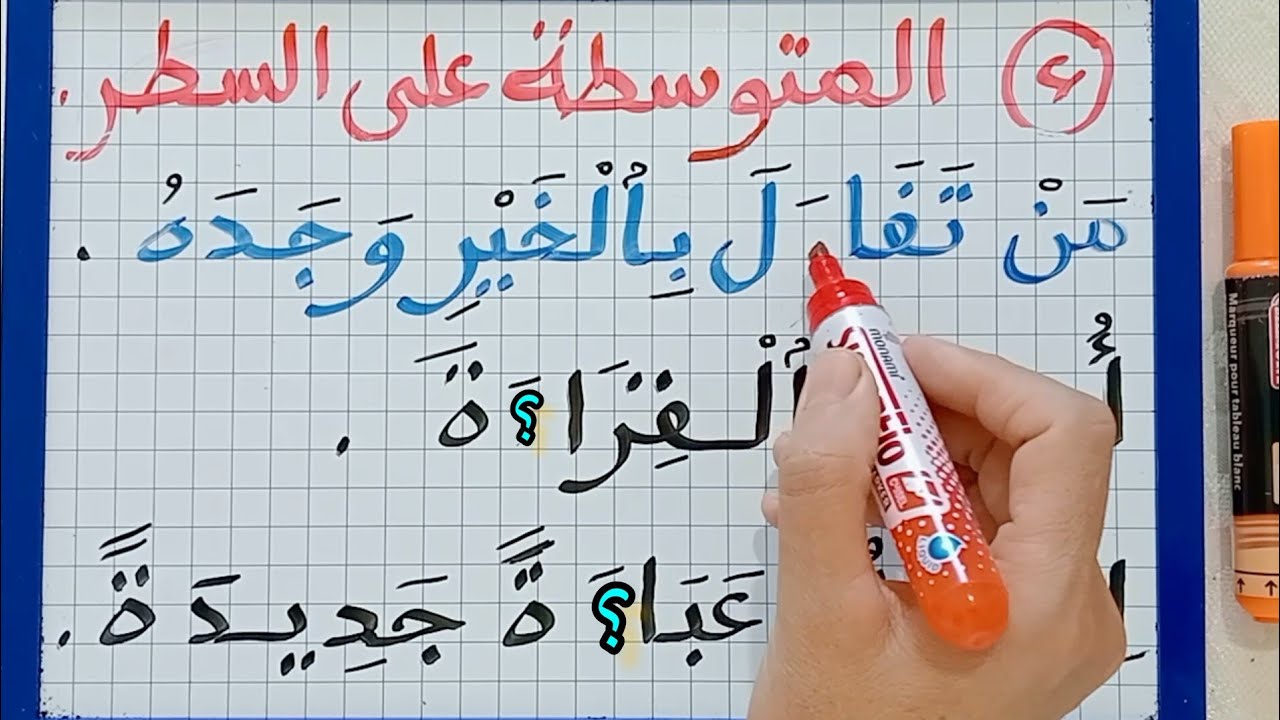 ء المتوسطة على السطر.
مَنْ تَفَاـَلَ بِٱلْخَيْرِ وَجَدَهُ .
ٱلْقِرَا؟َةَ .
عَبَا؟َةً جَدِيدَةً .
monami
Marqueur pour tableau blanc